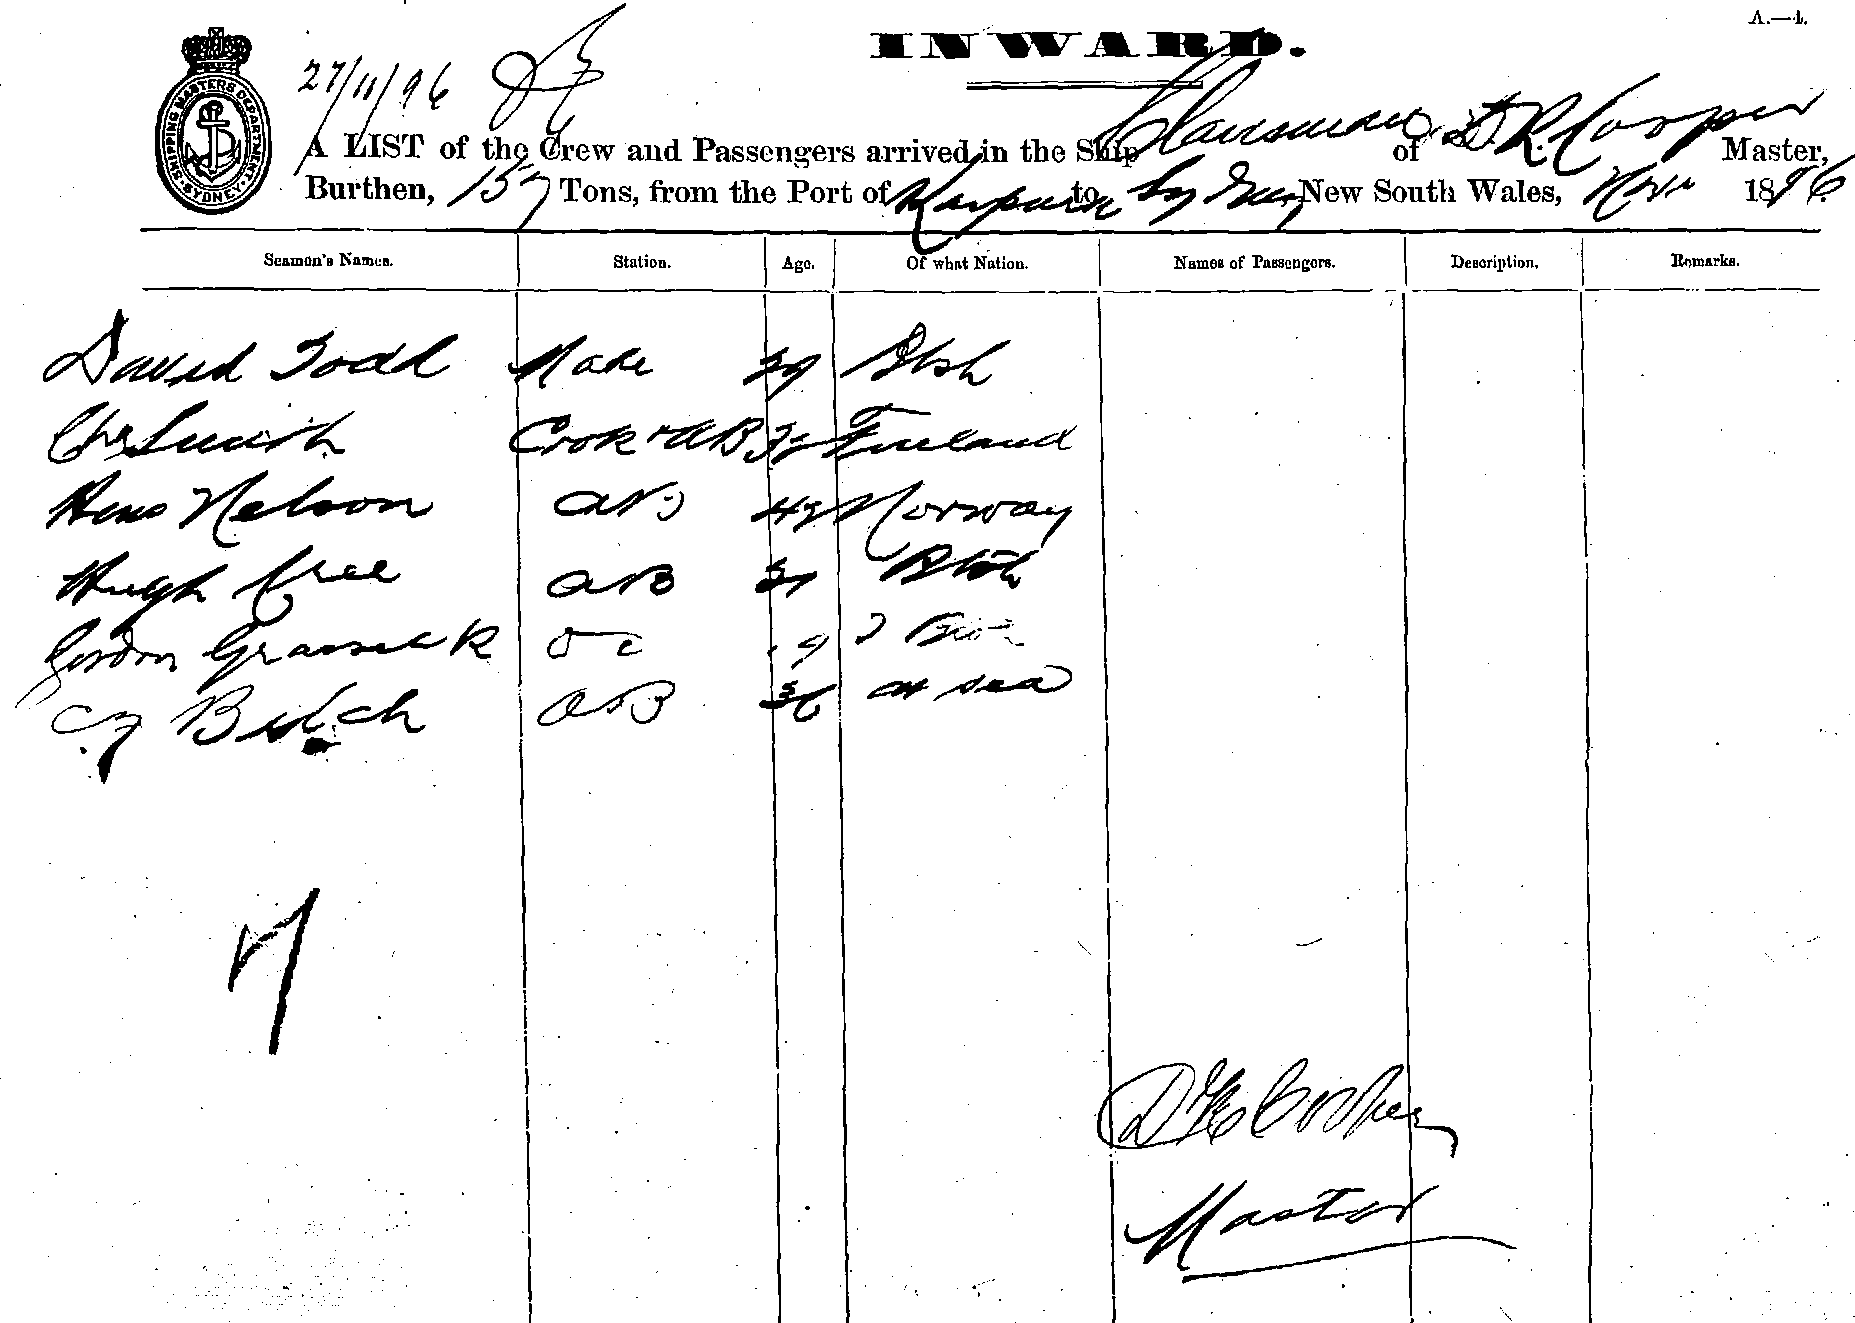 A.—1.
INWARD.
27/11/96
SHIPPING MASTERS DEPARTMENT. SYDNEY.
A LIST of the Crew and Passengers arrived in the Ship Clansman of D. R. Cooper Master,
Burthen, 157 Tons, from the Port of Kaipara to Sydney New South Wales, Novr 1896.
Seamen's Names. Station. Age. Of what Nation. Names of Passengers. Description. Remarks.
David Todd Mate 39 Btsh
Chs Smith Cook & AB Finland
Hans Nelson AB 49 Norway
Hugh Cree AB Btsh
Gordon
AB 36 at sea
7
D R Cooper
Master